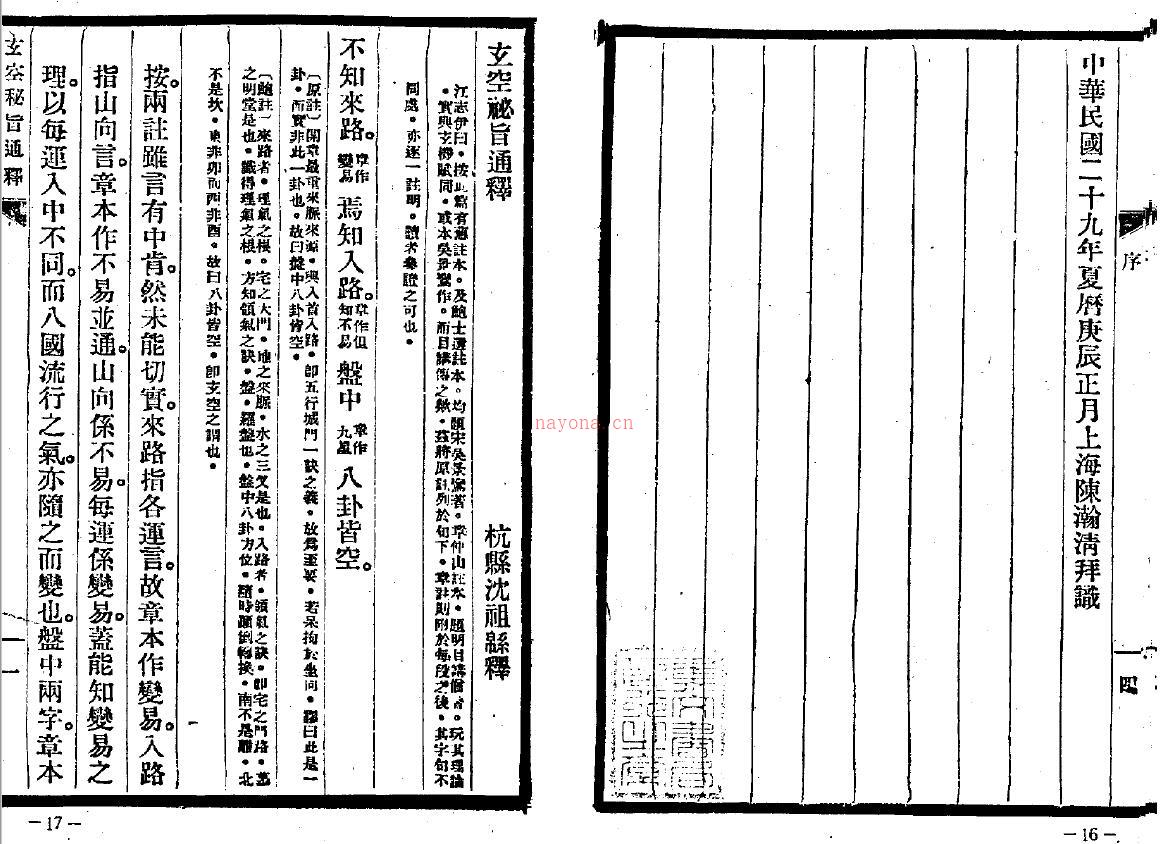 序
一四
中華民國二十九年夏曆庚辰正月上海陳瀚清拜識
—16—
玄空祕旨通釋
杭縣沈祖緜釋
江志伊曰。按此篇有舊註本。及鮑士選註本。均題宋吳景鸞著。章仲山註本。題明目講僧著。玩其理論
。實與玄機賦同。或本吳景鸞作。而目講傳之歟。茲將原註列於句下。章註則附於每段之後。其字句不
同處。亦逐一註明。讀者參證之可也。
不知來路。章作變易焉知入路。章作但知不易盤中章作九星八卦皆空。
〔原註〕開章最重來脈來源。與入首入路。卽五行城門一訣之義。故爲至要。若呆拘於坐向。謬曰此是一
卦。而實非此一卦也。故曰盤中八卦皆空。
〔鮑註〕來路者。理氣之根。宅之大門。地之來脈。水之三叉是也。入路者。領氣之訣。卽宅之門路。墓
之明堂是也。識得理氣之根。方知領氣之訣。盤。羅盤也。盤中八卦方位。隨時顚倒輪換。南不是離。北
不是坎。東非卯而西非酉。故曰八卦皆空。卽玄空之謂也。
按。兩註雖言有中肯。然未能切實。來路指各運言。故章本作變易。入路
指山向言。章本作不易並通。山向係不易。每運係變易。蓋能知變易之
理。以每運入中不同。而八國流行之氣。亦隨之而變也。盤中兩字。章本
玄空秘旨通釋
一
—17—
nayona.cn